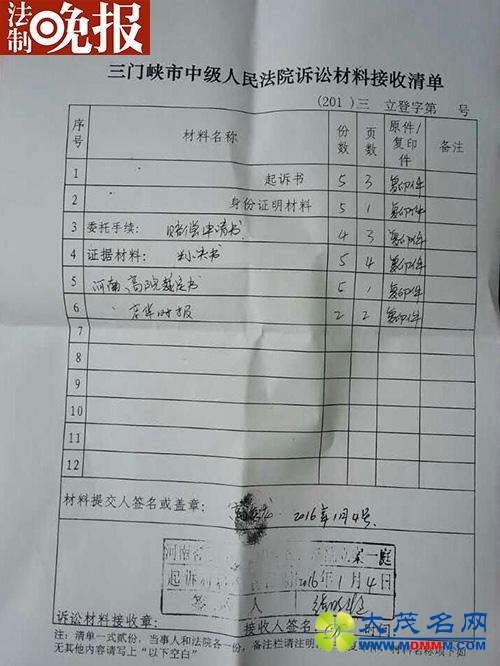 法制晚报
三门峡市中级人民法院诉讼材料接收清单
(201 )三 立登字第 号
序号 材料名称 份数 页数 原件/复印件 备注
1 起诉书 5 3 复印件
2 身份证明材料 5 1 复印件
3 委托手续: 赔偿申请书 4 3 复印件
4 证据材料: 判决书 5 4 复印件
5 河南高院裁定书 5 1 复印件
6 2 2 复印件
7
8
9
10
11
12
材料提交人签名或盖章: 2016年1月4号
河南省 立案一庭
起诉 2016年1月4日
签 人
诉讼材料接收章: 接收人签名
注:清单一式贰份,当事人和法院各一份,备注栏请注明
无其他内容请写上"以下空白" 材料名称项下如
大茂名网
WWW.MDMMM.COM